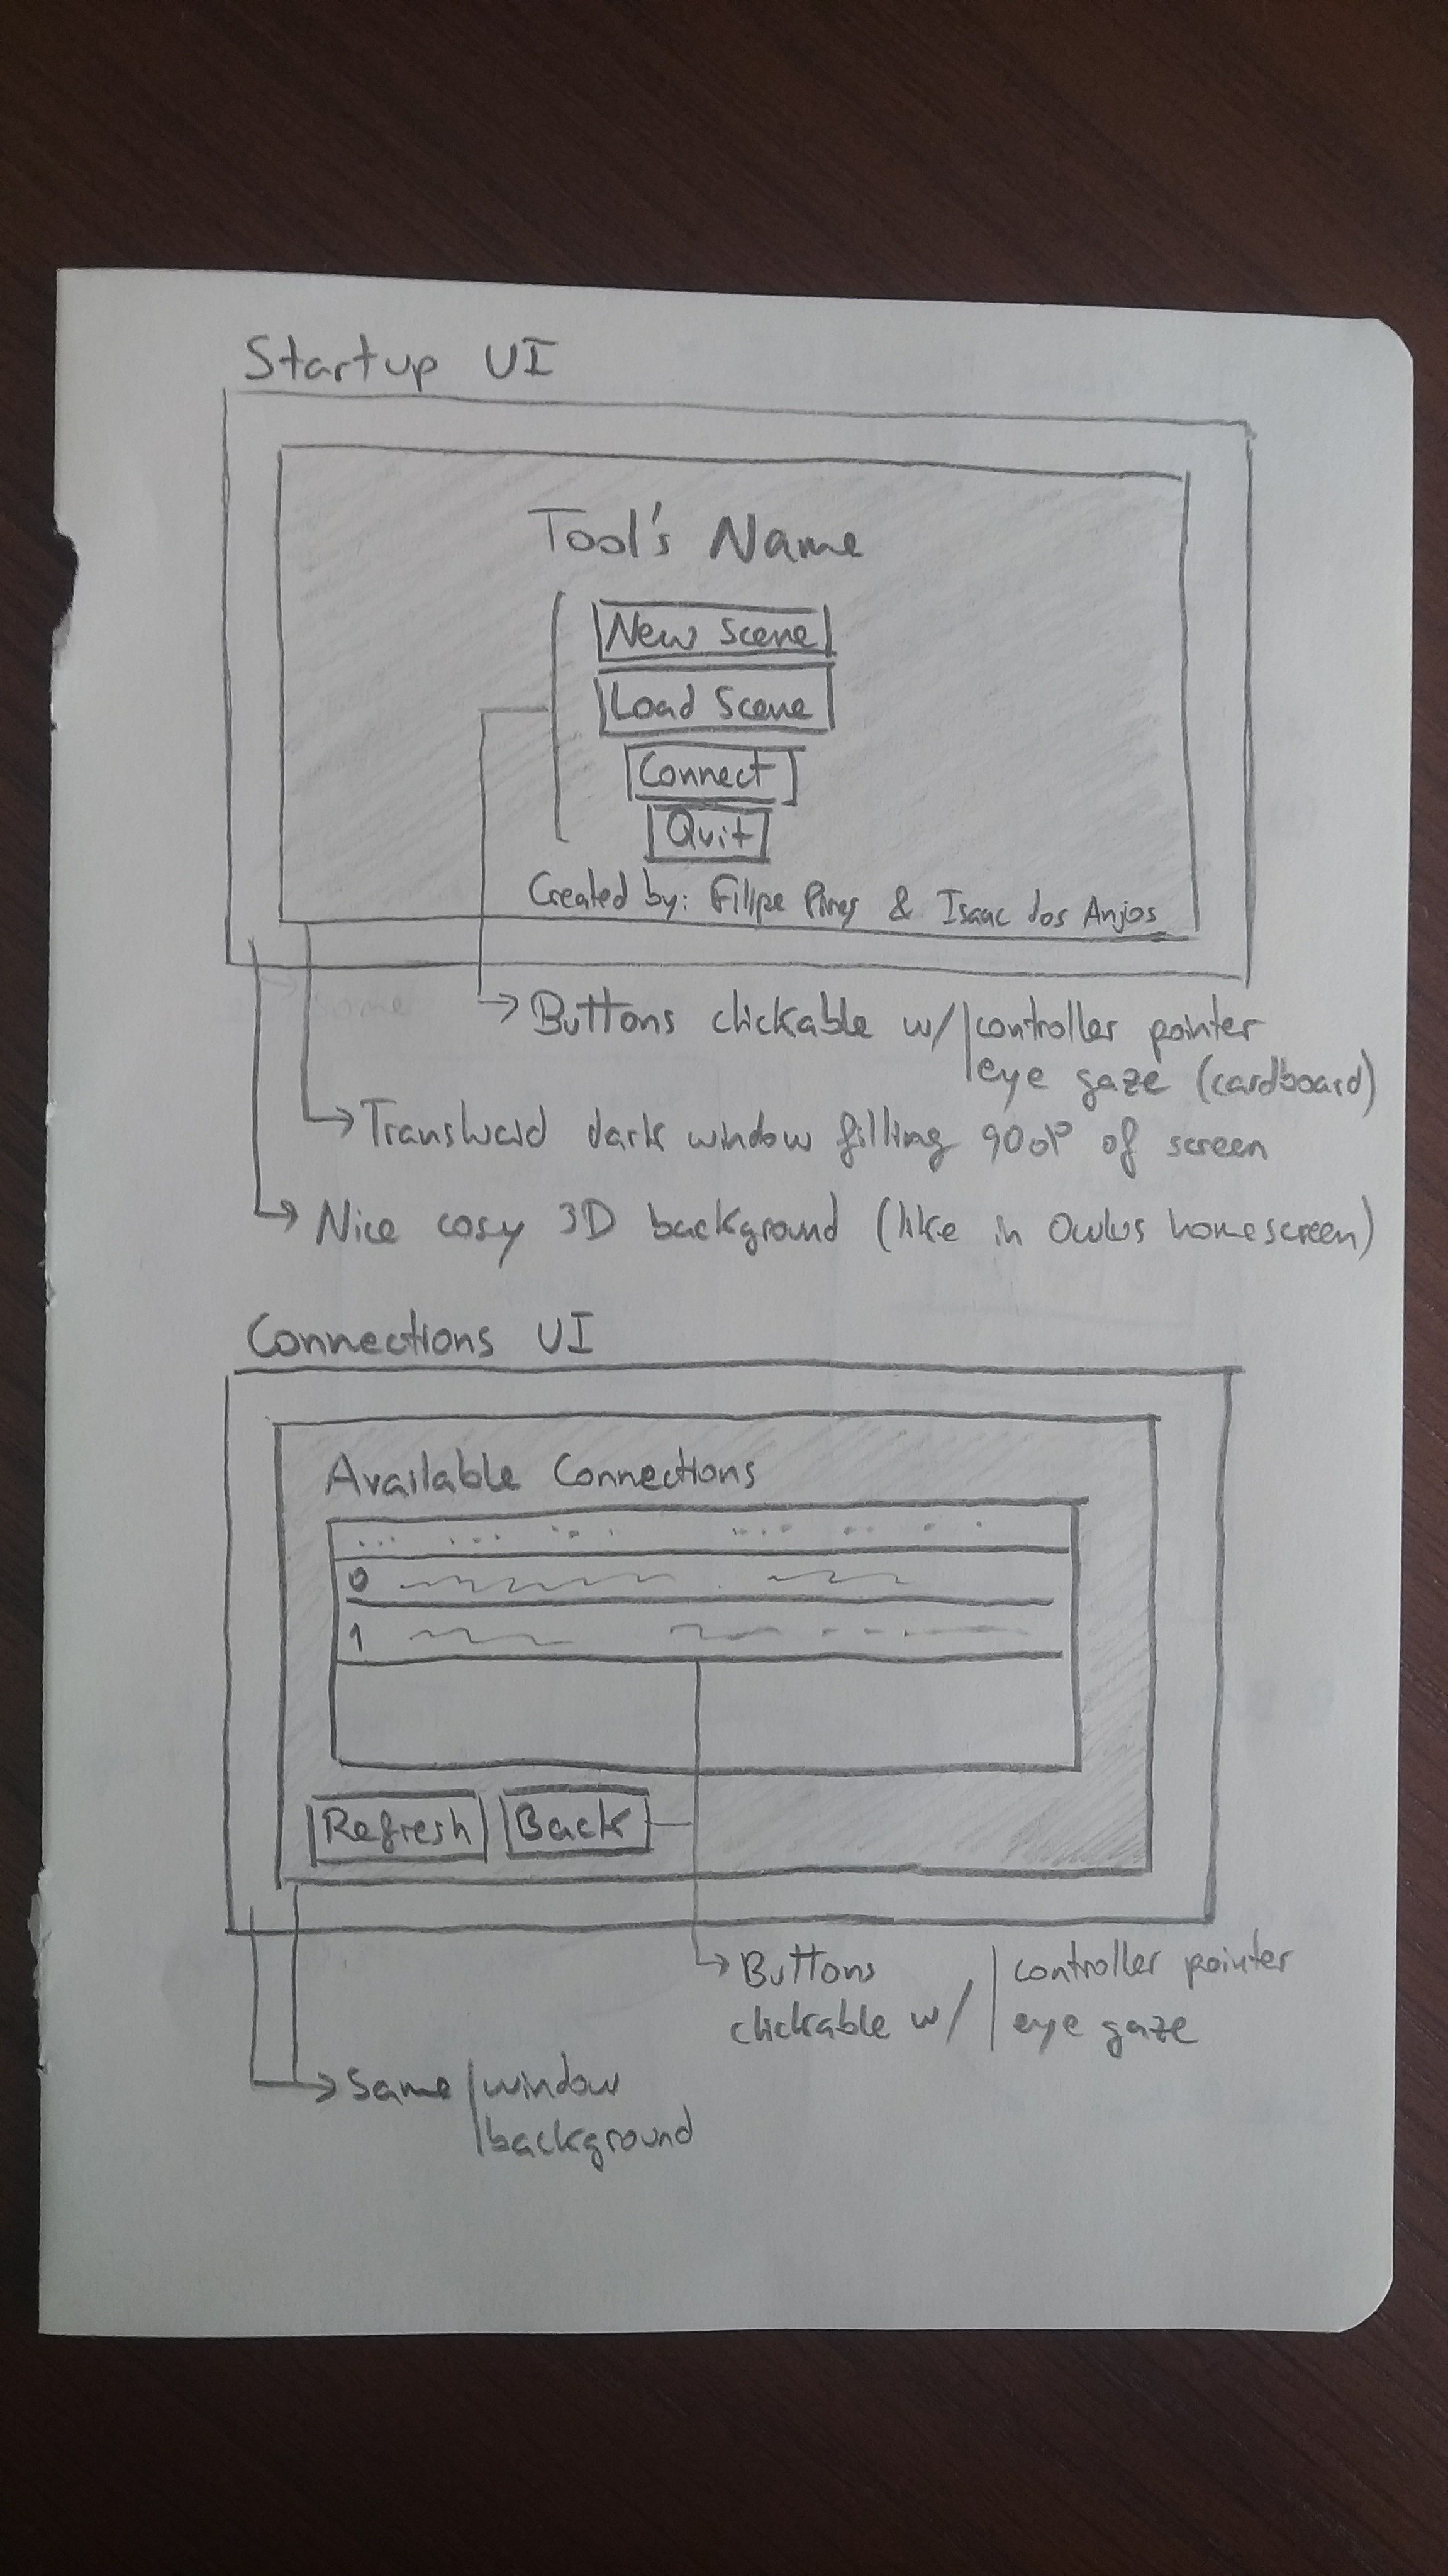 Startup UI
Tool's Name
New Scene
Load Scene
Connect
Quit
Created by: Filipe Pires & Isaac dos Anjos
Buttons clickable w/ controller pointer
eye gaze (cardboard)
Translucid dark window filling 90% of screen
Nice cosy 3D background (like in Oculus homescreen)
Connections UI
Available Connections
0
1
Refresh Back
Buttons controller pointer
clickable w/ eye gaze
Same window
background